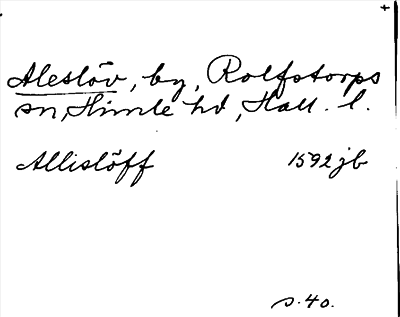 Aleslöv, by, Rolfstorps
sn, Himle hd, Hall. l.
Allislöff 1592 jb
s. 40.